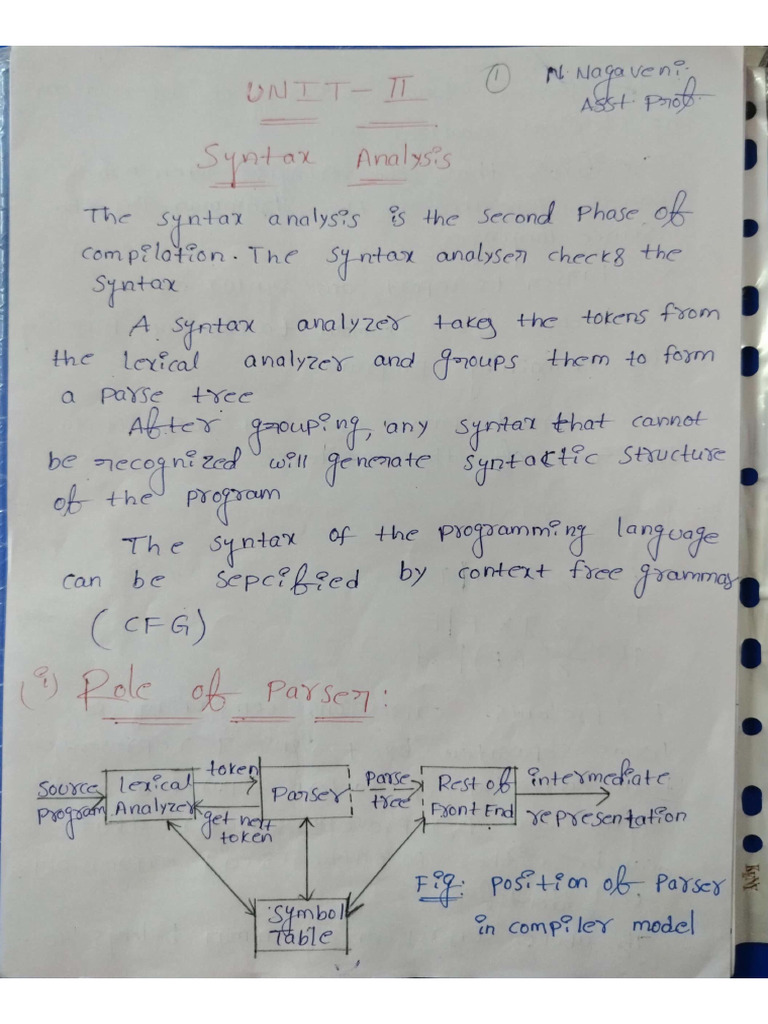 ① N. Nagaveni.
Asst. Prof.
UNIT-II
Syntax Analysis
The syntax analysis is the second Phase of
compilation. The syntax analyser checks the
syntax
A syntax analyzer takes the tokens from
the lexical analyzer and groups them to form
a parse tree
After grouping, any syntax that cannot
be recognized will generate syntactic structure
of the program
The syntax of the programming language
can be sepcified by context free grammar
(CFG)
(i) Role of Parser:
source
program
Lexical
Analyzer
token
get next
token
Parser
Parse
tree
Rest of
Front End
intermediate
representation
Symbol
Table
Fig: position of Parser
in compiler model